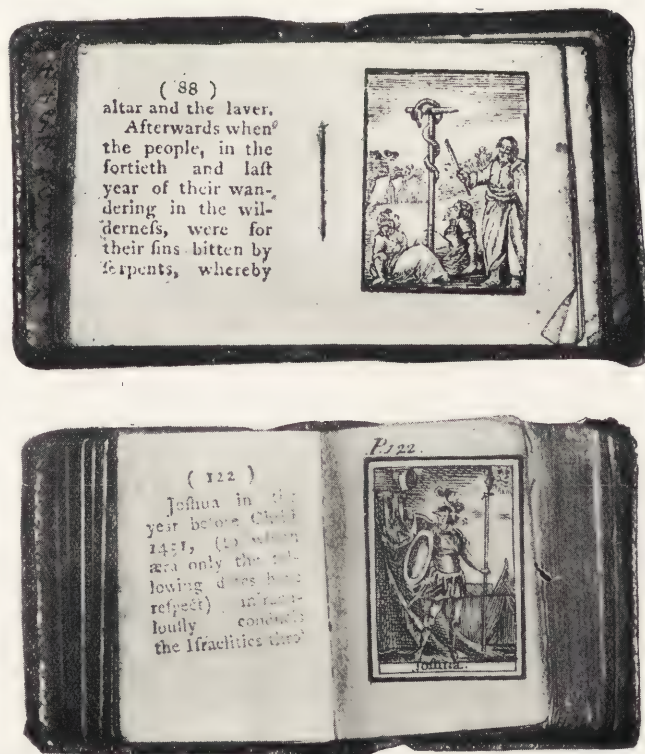 ( 88 )
altar and the laver.
Afterwards when
the people, in the
fortieth and laſt
year of their wan-
dering in the wil-
derneſs, were for
their ſins bitten by
ſerpents, whereby
( 122 )
Joſhua in the
year before
1451, (to
æra only the
lowing dates have
reſpect)
louſly conducts
the Iſraelities thro'
P.122.
Joſhua.